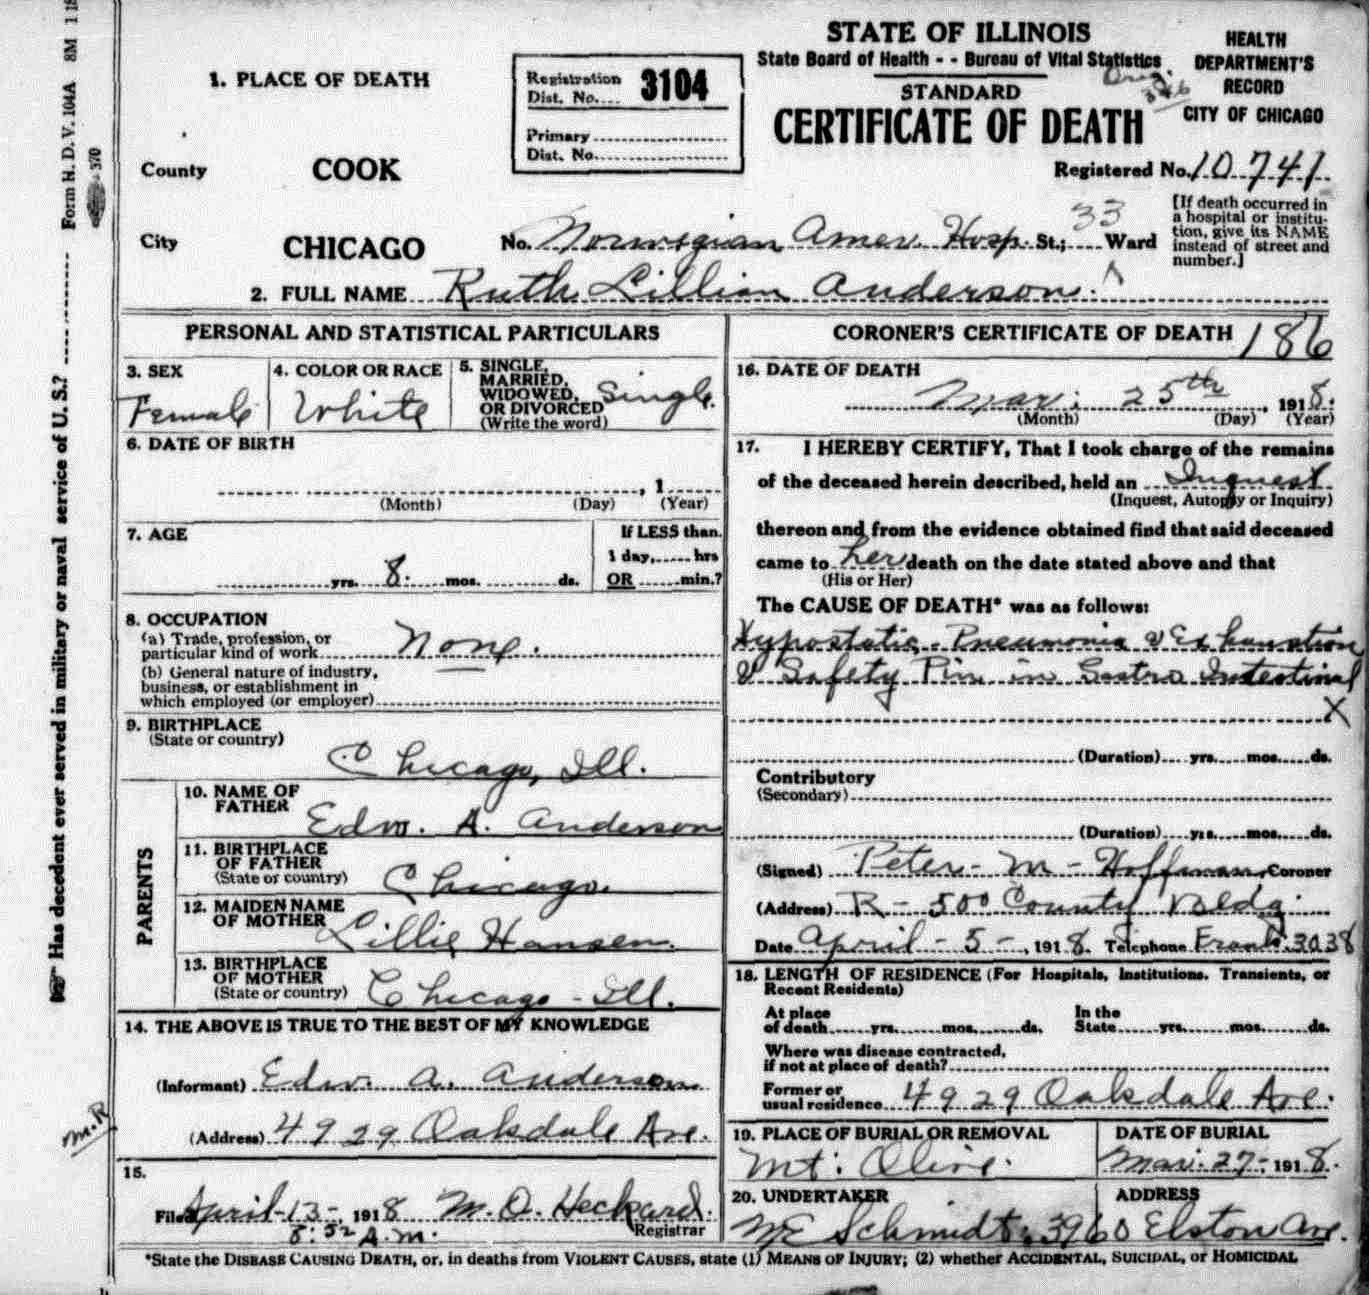 STATE OF ILLINOIS
State Board of Health - - Bureau of Vital Statistics
STANDARD
CERTIFICATE OF DEATH
HEALTH
DEPARTMENT'S
RECORD
CITY OF CHICAGO
Registered No. 10741
Form H. D. V. 104A 8M
370
1. PLACE OF DEATH
Registration
Dist. No. 3104
Primary
Dist. No.
County COOK
City CHICAGO No. Norwegian Amer. Hosp. St.; 33 Ward
[If death occurred in
a hospital or institu-
tion, give its NAME
instead of street and
number.]
2. FULL NAME Ruth Lillian Anderson.
PERSONAL AND STATISTICAL PARTICULARS
3. SEX
Female
4. COLOR OR RACE
White
5. SINGLE,
MARRIED,
WIDOWED,
OR DIVORCED
(Write the word)
Single.
6. DATE OF BIRTH
, 1
(Month) (Day) (Year)
7. AGE
yrs. 8. mos. ds.
If LESS than
1 day, hrs
OR min.?
8. OCCUPATION
(a) Trade, profession, or
particular kind of work None.
(b) General nature of industry,
business, or establishment in
which employed (or employer)
9. BIRTHPLACE
(State or country)
Chicago, Ill.
PARENTS
10. NAME OF
FATHER
Edw. A. Anderson
11. BIRTHPLACE
OF FATHER
(State or country)
Chicago.
12. MAIDEN NAME
OF MOTHER
Lillie Hansen.
13. BIRTHPLACE
OF MOTHER
(State or country)
Chicago - Ill.
14. THE ABOVE IS TRUE TO THE BEST OF MY KNOWLEDGE
(Informant) Edw. A. Anderson
(Address) 4929 Oakdale Ave.
15.
Filed April - 13 -, 1918 M. O. Heckard.
8:52 A.m. Registrar
CORONER'S CERTIFICATE OF DEATH 186
16. DATE OF DEATH
Mar. 25th, 1918.
(Month) (Day) (Year)
17. I HEREBY CERTIFY, That I took charge of the remains
of the deceased herein described, held an Inquest
(Inquest, Autopsy or Inquiry)
thereon and from the evidence obtained find that said deceased
came to her death on the date stated above and that
(His or Her)
The CAUSE OF DEATH* was as follows:
Hypostatic Pneumonia & Exhaustion
& Safety Pin in Gastro Intestinal
X
(Duration) yrs. mos. ds.
Contributory
(Secondary)
(Duration) yrs. mos. ds.
(Signed) Peter - M - Hoffman, Coroner
(Address) R - 500 County Bldg
Date April - 5 -, 1918. Telephone Frank. 3038
18. LENGTH OF RESIDENCE (For Hospitals, Institutions, Transients, or
Recent Residents)
At place
of death yrs. mos. ds.
In the
State yrs. mos. ds.
Where was disease contracted,
if not at place of death?
Former or
usual residence 4929 Oakdale Ave.
19. PLACE OF BURIAL OR REMOVAL
Mt. Olive.
DATE OF BURIAL
Mar. 27 - 1918.
20. UNDERTAKER
Schmidt.
ADDRESS
3960 Elston Ave.
*State the DISEASE CAUSING DEATH, or, in deaths from VIOLENT CAUSES, state (1) MEANS OF INJURY; (2) whether ACCIDENTAL, SUICIDAL, or HOMICIDAL
Has decedent ever served in military or naval service of U. S.?
M.R